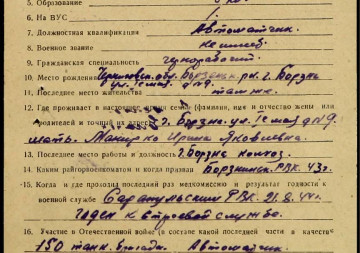 5. Образование
6. На ВУС
7. Должностная квалификация Автоматчик.
8. Военное звание
9. Гражданская специальность чернорабоч.
10. Место рождения Черниговск. обл. Борзенск. р-н. г. Борзна
ул. 1е мая д №9.
11. Последнее место жительства там же
12. Где проживает в настоящее время семья (фамилия, имя и отчество жены или
родителей и точный их адрес) г. Борзна. ул. 1е мая д №9.
мать. Ирина Яковлевна.
13. Последнее место работы и должность г. Борзна колхоз.
14. Каким райгорвоенкоматом и когда призван Борзнинск. РВК. 43 г.
15. Когда и где проходил последний раз медкомиссию и результат годности к
военной службе Сарапульским РВК. 21. 8. 44 г.
Годен к строевой службе.
16. Участие в Отечественной войне (в составе какой последней части и в качестве
150 танк. бригады. Автоматчик.